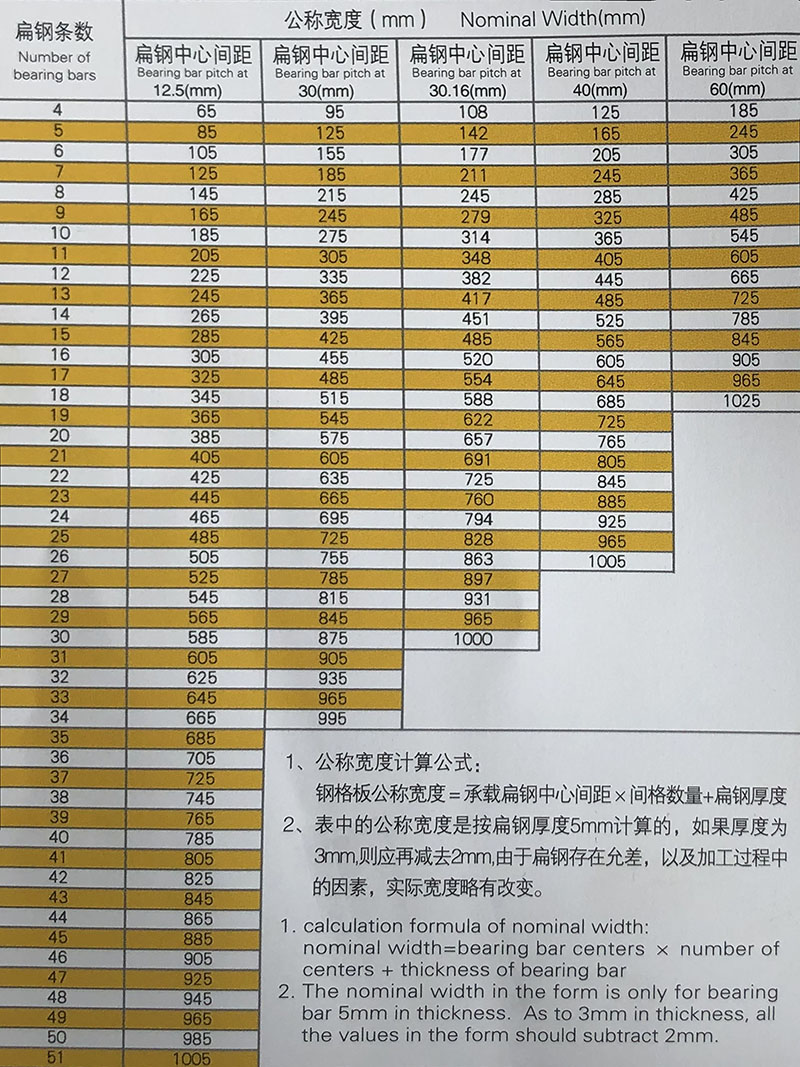 扁钢条数
Number of
bearing bars
公称宽度(mm) Nominal Width(mm)
扁钢中心间距 扁钢中心间距 扁钢中心间距 扁钢中心间距 扁钢中心间距
Bearing bar pitch at Bearing bar pitch at Bearing bar pitch at Bearing bar pitch at Bearing bar pitch at
12.5(mm) 30(mm) 30.16(mm) 40(mm) 60(mm)
4 65 95 108 125 185
5 85 125 142 165 245
6 105 155 177 205 305
7 125 185 211 245 365
8 145 215 245 285 425
9 165 245 279 325 485
10 185 275 314 365 545
11 205 305 348 405 605
12 225 335 382 445 665
13 245 365 417 485 725
14 265 395 451 525 785
15 285 425 485 565 845
16 305 455 520 605 905
17 325 485 554 645 965
18 345 515 588 685 1025
19 365 545 622 725
20 385 575 657 765
21 405 605 691 805
22 425 635 725 845
23 445 665 760 885
24 465 695 794 925
25 485 725 828 965
26 505 755 863 1005
27 525 785 897
28 545 815 931
29 565 845 965
30 585 875 1000
31 605 905
32 625 935
33 645 965
34 665 995
35 685
36 705
37 725
38 745
39 765
40 785
41 805
42 825
43 845
44 865
45 885
46 905
47 925
48 945
49 965
50 985
51 1005
1、公称宽度计算公式:
钢格板公称宽度=承载扁钢中心间距×间格数量+扁钢厚度
2、表中的公称宽度是按扁钢厚度5mm计算的，如果厚度为
3mm,则应再减去2mm,由于扁钢存在允差，以及加工过程中
的因素，实际宽度略有改变。
1. calculation formula of nominal width:
nominal width=bearing bar centers × number of
centers + thickness of bearing bar
2. The nominal width in the form is only for bearing
bar 5mm in thickness. As to 3mm in thickness, all
the values in the form should subtract 2mm.